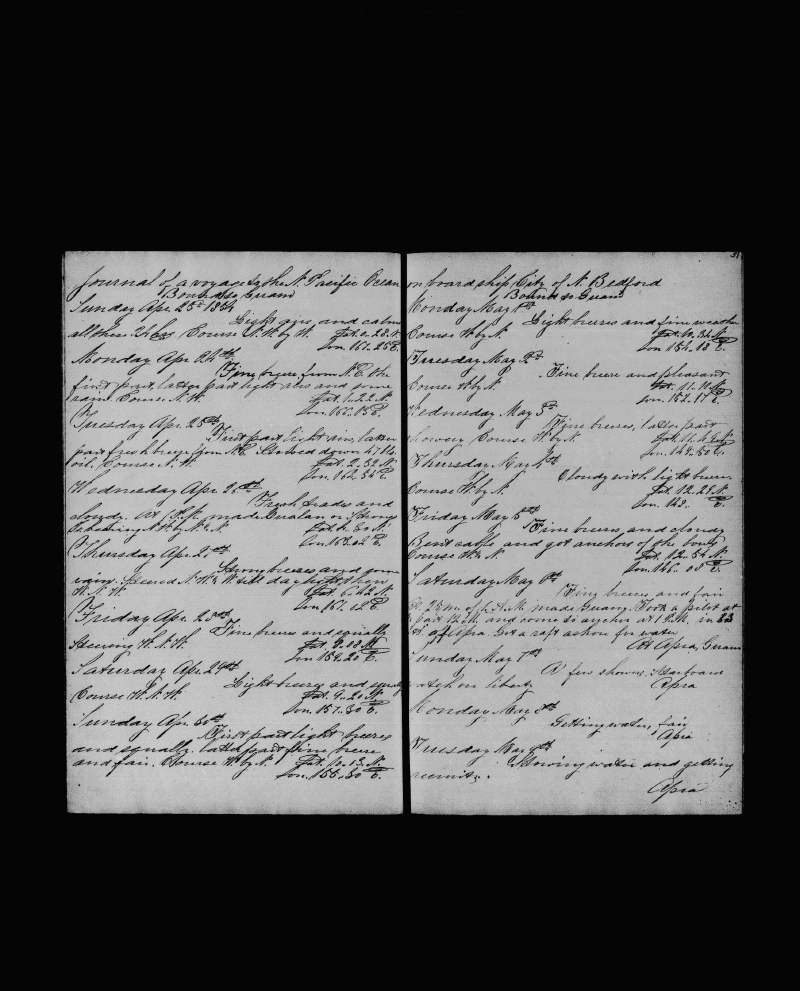 Journal of a voyage to the N. Pacific Ocean
Bound to Guam
Sunday Apr. 23rd 1854
Light airs, and calms
all these 24 hrs Course N.W. by W. Lat. 0..28. N.
Lon. 167..25 E.
Monday Apr. 24th
Fine breeze from N.E. the
first part, latter part light airs and some
rain Course N.W. Lat. 1..22 N.
Lon. 165..15 E.
Tuesday Apr. 25th
First part light airs, latter
part fresh breeze from N.E. down 47 bls.
oil. Course N.W. Lat. 2..52 N.
Lon. 164..34 E.
Wednesday Apr. 26th
Fresh trades and
cloudy. At 1 P.M. made Oualan or Strongs
N.W. by N. & N. Lat. 4..50 N.
Lon. 162..02 E.
Thursday Apr. 27th
Strong breezes and some
rain. Steered N.W. & W. till daylight then
W.N.W. Lat. 6..42 N.
Lon. 161..12 E.
Friday Apr. 28th
Fine breeze and squally
Steering W.N.W. Lat. 8..08 N.
Lon 159..20 E.
Saturday Apr. 29th
Light breeze, and squally
Course W.N.W. Lat. 9..20 N.
Lon. 157..30 E.
Sunday Apr. 30th
First part light breezes
and squally. latter part fine breeze
and fair. Course W. by N. Lat. 10..13. N.
Lon. 155..50 E.
51
on board ship City of N. Bedford
Bound to Guam
Monday May 1st
Light breezes and fine weather
Course W. by N. Lat. 10..34 N.
Lon 154..18 E.
Tuesday May 2nd
Fine breeze and pleasant
Course W. by N. Lat. 11..11 N.
Lon. 152..17 E.
Wednesday May 3rd
Fine breezes, latter part
showery Course W. by N. Lat. 11.. N.
Lon. 149..50 E.
Thursday May 4th
Cloudy with light breeze
Course W. by N. Lat. 12..29 N.
Lon. 148.. E.
Friday May 5th
Fine breeze, and cloudy
Bent cables and got anchors off the bows
Course W. & N. Lat. 12..54 N.
Lon. 146..05 E.
Saturday May 6th
Fine breeze and fair
At of 6 A.M. made Guam. Took a pilot at
past 12 M. and come to anchor at 1 P.M. in 23
off Apra. Got a raft ashore for water
At Apra, Guam
Sunday May 7th
A few showers. Starboard
watch on liberty
Apra
Monday May 8th
Getting water, fair
Apra
Tuesday May 9th
Stowing water and getting
recruits.
Apra